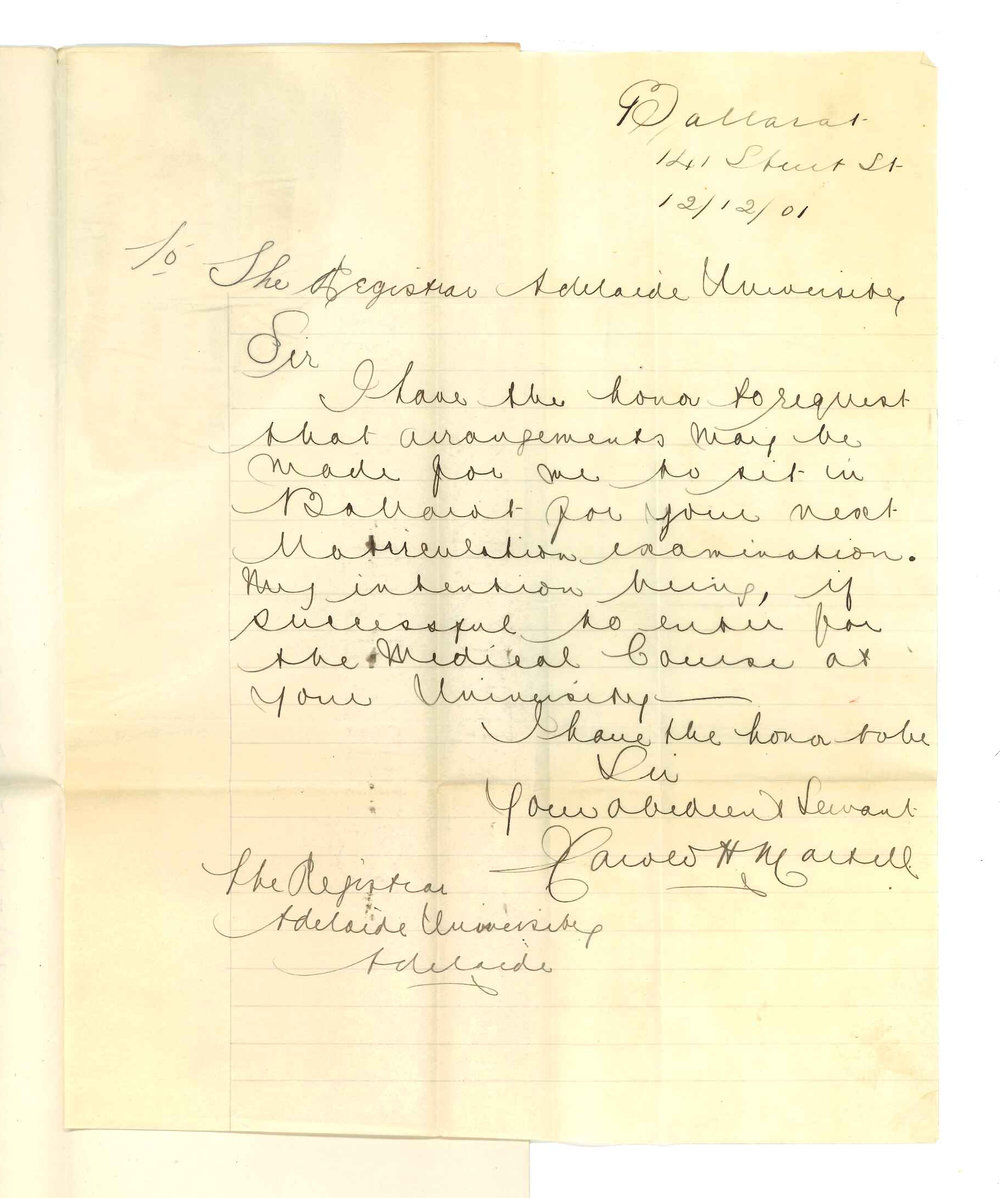 Ballarat
141 Sturt St
12/12/01
To The Registrar Adelaide University
Sir
I have the honor to request
that arrangements may be
made for me to sit in
Ballarat for your next
Matriculation examination.
My intention being, if
successful to enter for
the Medical Course at
your University
I have the honor to be
Sir
Your obedient Servant
H Martell
The Registrar
Adelaide University
Adelaide